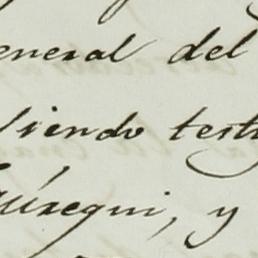 eneral del
siendo test
uregui, y